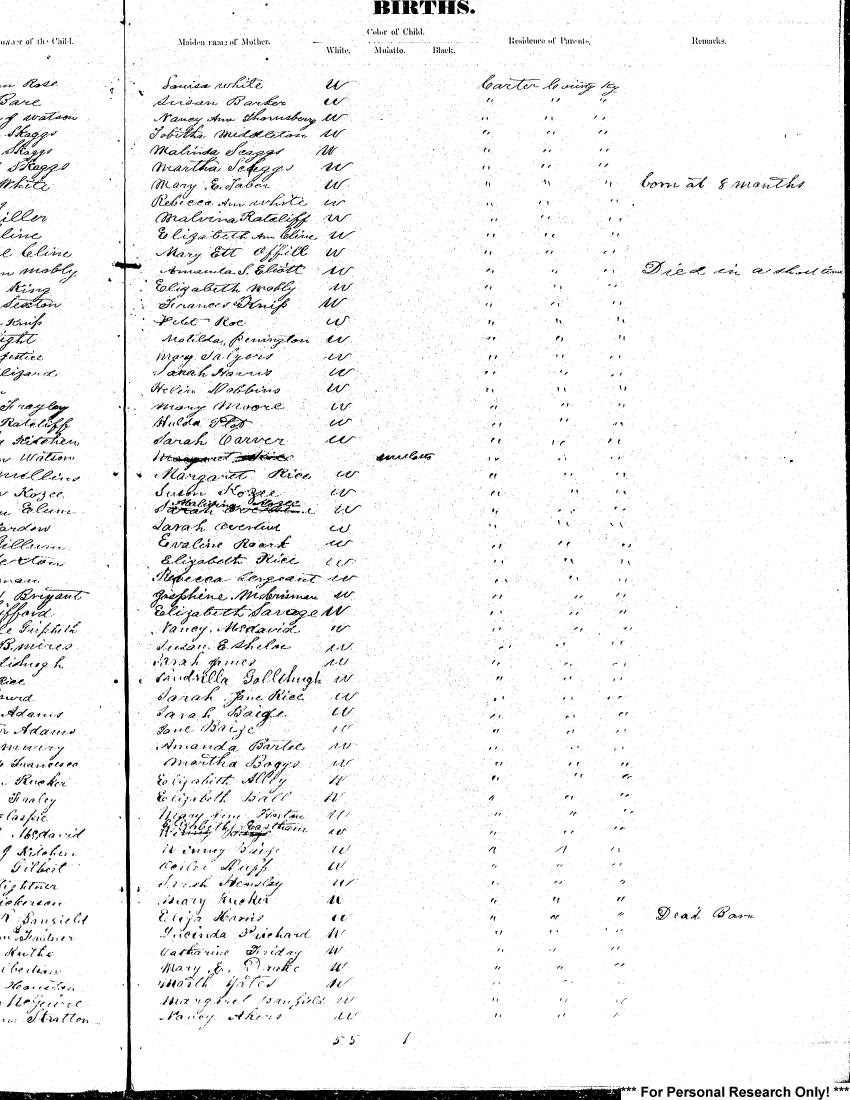 BIRTHS.
Color of Child.
owner of the Child. Maiden name of Mother. White. Mulatto. Black. Residence of Parents. Remarks.
Rose Louisa White W Carter County Ky
Bare Susan Barker W " " "
Watson Nancy Ann Thornsberry W " " "
Skaggs Tobitha Middleton W " " "
Skaggs Malinda Scaggs W " " "
Skaggs Martha Scaggs W " " "
White Mary E. Tabor W " " " born at 8 months
Rebecca Ann White W " " "
iller Malvina Ratcliff W " " "
line Elizabeth Ann Cline W " " "
Cline Mary Ett Offill W " " "
Mobly Amanda S. Eliott W " " " Died in a short time
King Elizabeth Mobly W " " "
Sexton Frances W " " "
Roe W " " "
ight Matilda Penington W " " "
Justice Mary Salyers W " " "
lizard Sarah Harris W " " "
Helen Robbins W " " "
Frayley Mary Moore W " " "
Ratcliff Hulda W " " "
Kitchen Sarah Carver W " " "
Watson Margaret Rice mulatto " " "
mullins Margaret Rice W " " "
Kozee Susan Kozee W " " "
Elum Kozee W " " "
ardon Sarah W " " "
illum Evaline Roark W " " "
exton Elizabeth Rice W " " "
man Rebecca Sergeant W " " "
Briyant Josephine W " " "
ifford Elizabeth Savage W " " "
Griffeth Nancy McDavid W " " "
Susan E W " " "
Sarah James W " " "
Rice W " " "
Sarah Jane Rice W " " "
Adams Sarah Baige W " " "
Adams Jane Baize W " " "
Amanda Bartee W " " "
Francisco Martha Boggs W " " "
Rucker Elizabeth Alley W " " "
Fraley Elizabeth Hall W " " "
Mary Ann W " " "
McDavid Elizabeth Eastham W " " "
Kitchen Winney Baize W " " "
Gilbert Huff W " " "
ightner Sarah Hensley W " " "
ickerson Mary Rucker W " " "
Banfield Eliza Harris W " " " Dead Born
Lucinda Prichard W " " "
Catharine Friday W " " "
Mary E. Drake W " " "
Yates W " " "
McGuire Margaret Banfield W " " "
Stratton Nancy Akers W " " "
55 1
*** For Personal Research Only! ***